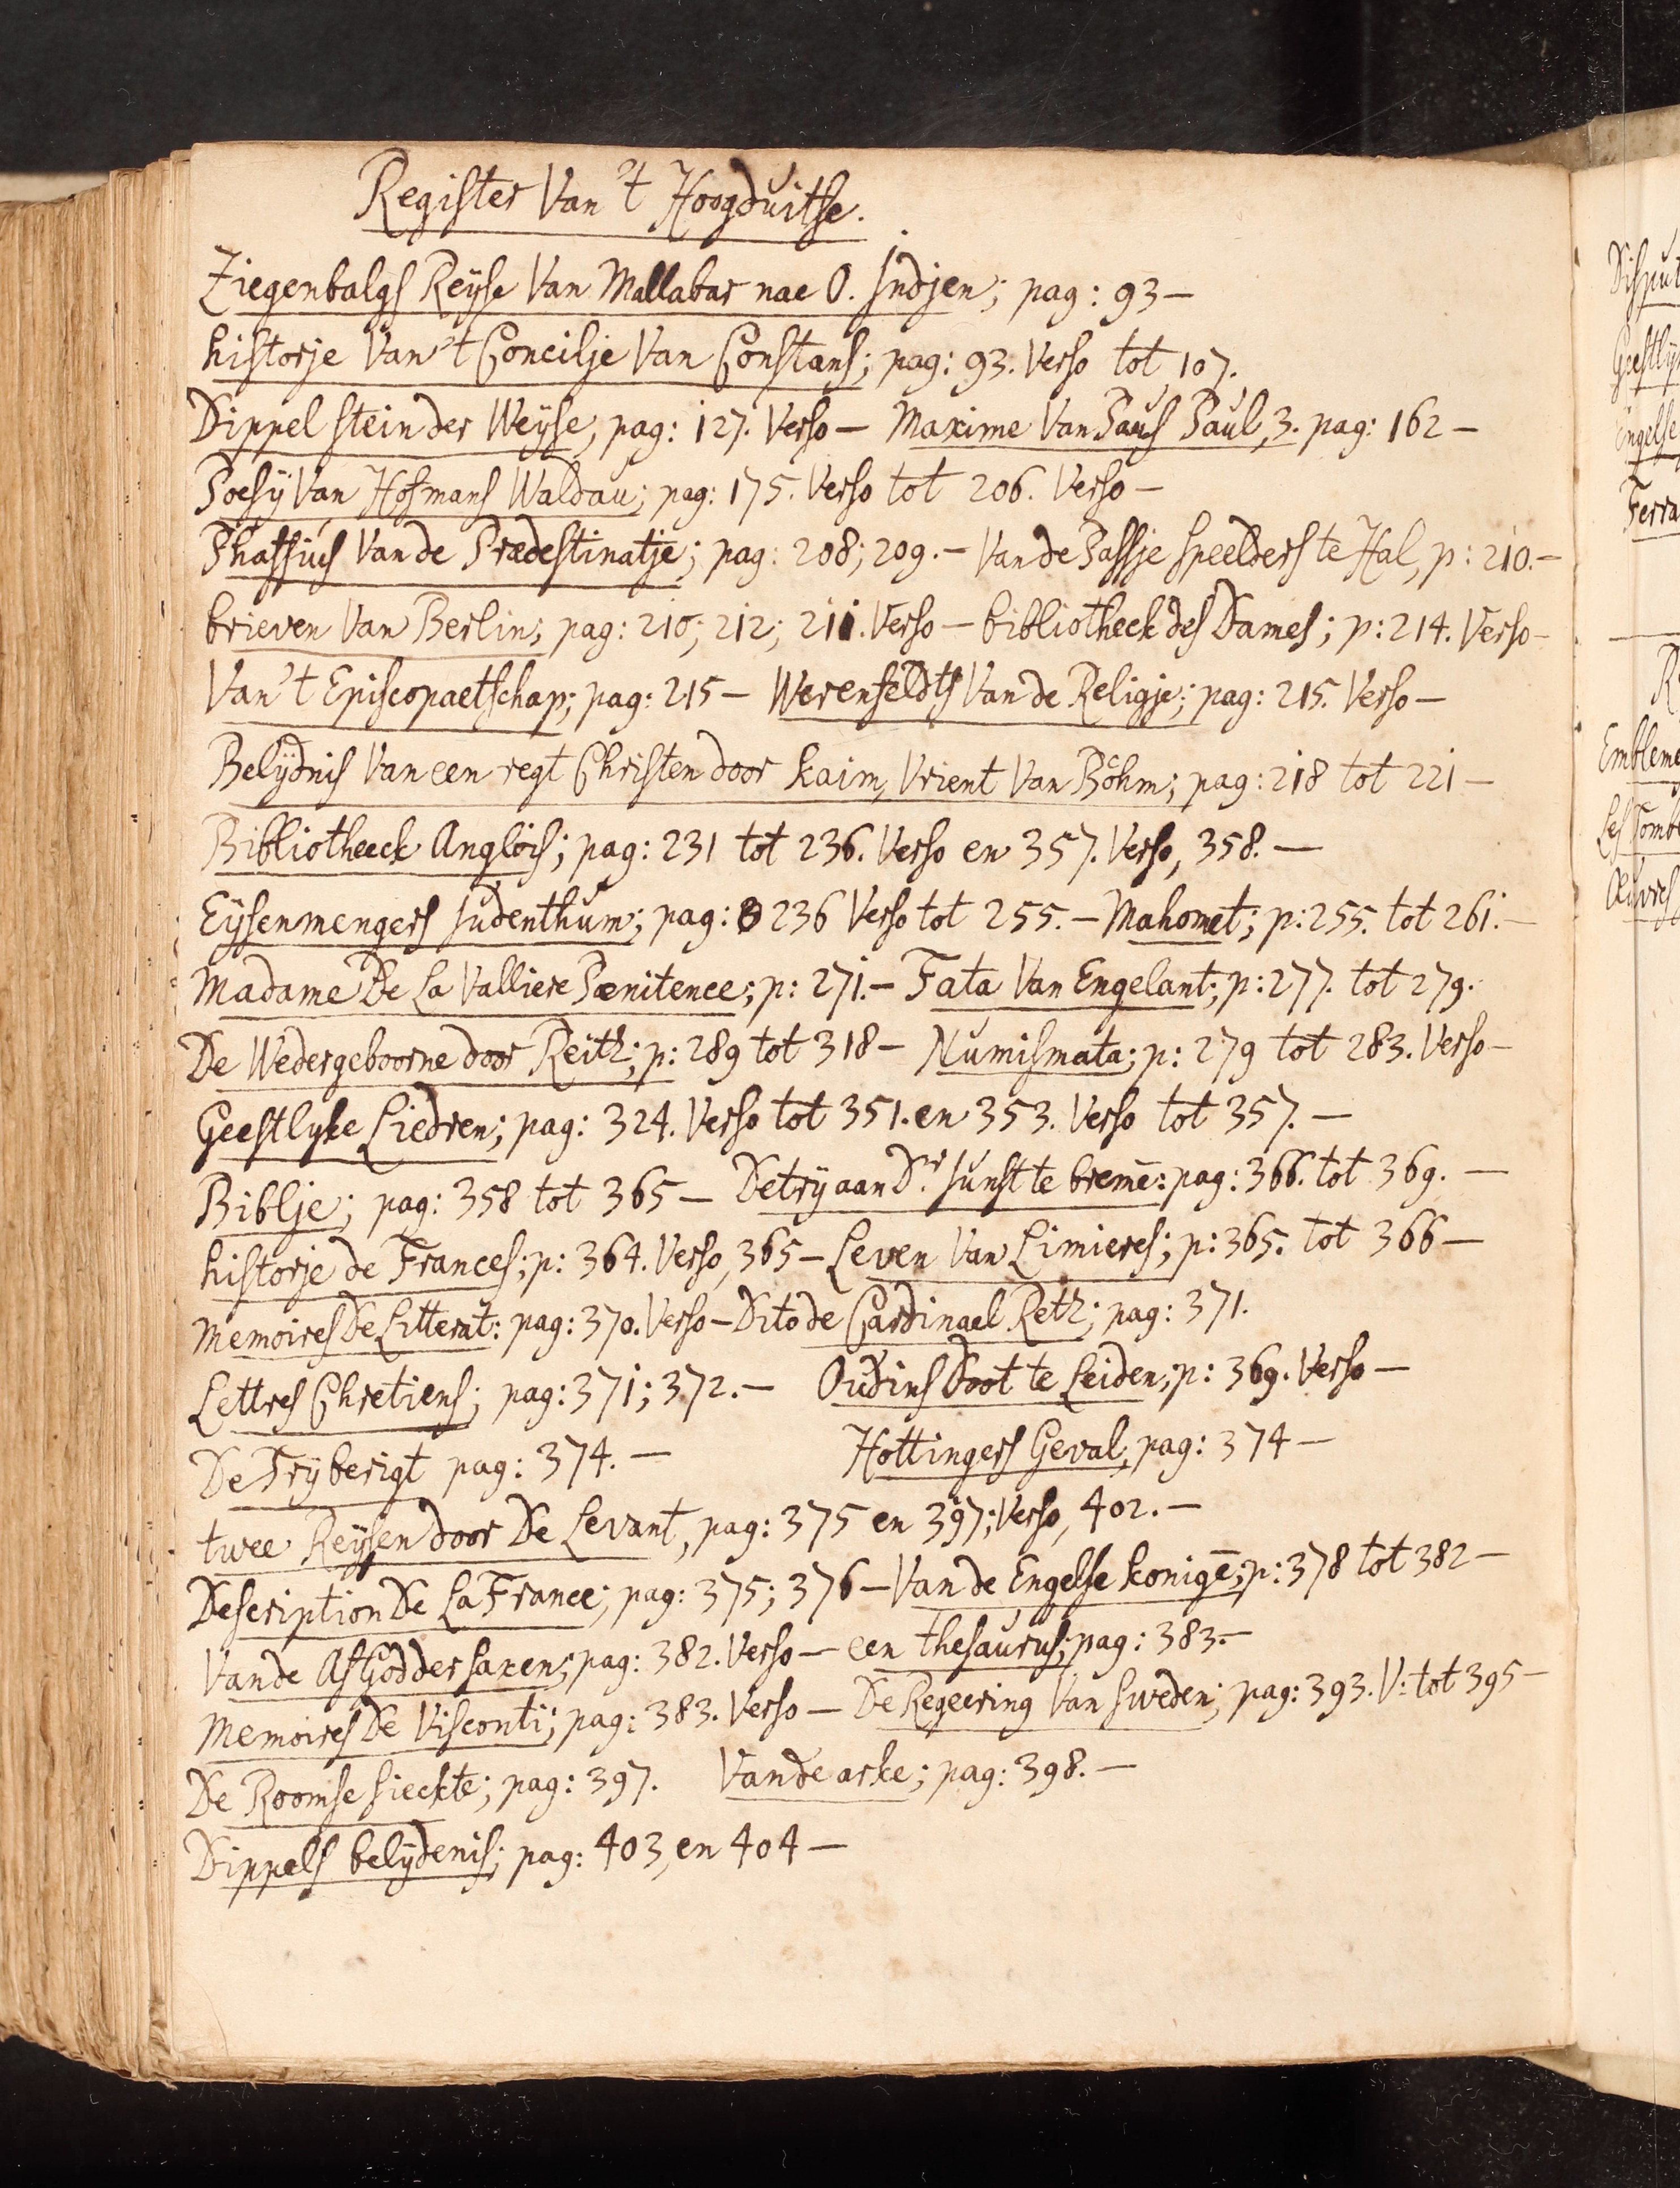 Register Van 't Hoogduitse.
Ziegenbalgs Reyse Van Mallabar nae O. Indjen; pag: 93 —
historje Van 't Concilje Van Constans; pag: 93. Verso tot 107.
Dippel stein der Weyse, pag: 127. Verso — Maxime Van Paus Paul, 3. pag: 162 —
Poesÿ Van Hofmans Waldau; pag: 175. Verso tot 206. Verso —
Phaffius Van de Prædestinatje; pag: 208; 209. — Van de Passje speelders te Hal, p: 210. —
brieven Van Berlin; pag: 210; 212; 211. Verso — bibliotheek des Dames; p: 214. Verso —
Van 't Episcopaetschap; pag: 215 — Werenfeldts Van de Religje; pag: 215. Verso —
Belÿdnis Van een regt Christen door kaim, Vrient Van Böhm; pag: 218 tot 221 —
Bibliotheeck Anglois; pag: 231 tot 236. Verso en 357. Verso, 358. —
Eÿsenmengers Judenthum; pag: 236 Verso tot 255. — Mahomet; p: 255. tot 261. —
Madame De La Valliere Pœnitence; p: 271. — Fata Van Engelant; p: 277. tot 279.
De Wedergeboorne door Reitz; p: 289 tot 318 — Numismata; p: 279 tot 283. Verso —
Geestlyke Liedren; pag: 324. Verso tot 351. en 353. Verso tot 357. —
Biblje; pag: 358 tot 365 — Detrÿ aan Dr. Junst te breme: pag: 366. tot 369. —
historje de Frances; p: 364. Verso, 365 — Leven Van Limieres; p: 365. tot 366 —
Memoires De Litterat: pag: 370. Verso — Dito de Cardinael Retz; pag: 371.
Lettres Chretiens; pag: 371; 372. — Oudins Doot te Leiden; p: 369. Verso —
De Trÿ berigt pag: 374. — Hottingers Geval, pag: 374 —
twee Reÿsen door De Levant, pag: 375 en 397; Verso, 402. —
Description De La France; pag: 375; 376 — Van de Engelse konigē; p: 378 tot 382 —
Van de Afgod der saxen; pag: 382. Verso — een thesaurus; pag: 383. —
Memoires De Visconti; pag: 383. Verso — De Regeering Van Sweden; pag: 393. V: tot 395 —
De Roomse sieckte; pag: 397. Van de arke; pag: 398. —
Dippels belÿdenis; pag: 403, en 404 —
Geestlÿ
Engelse
Terra
Embleme